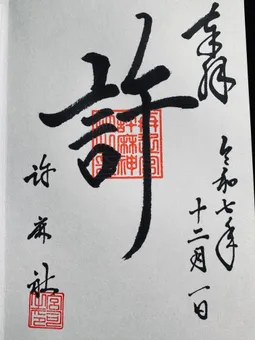 奉拝
令和七年
十二月一日
許
許麻社